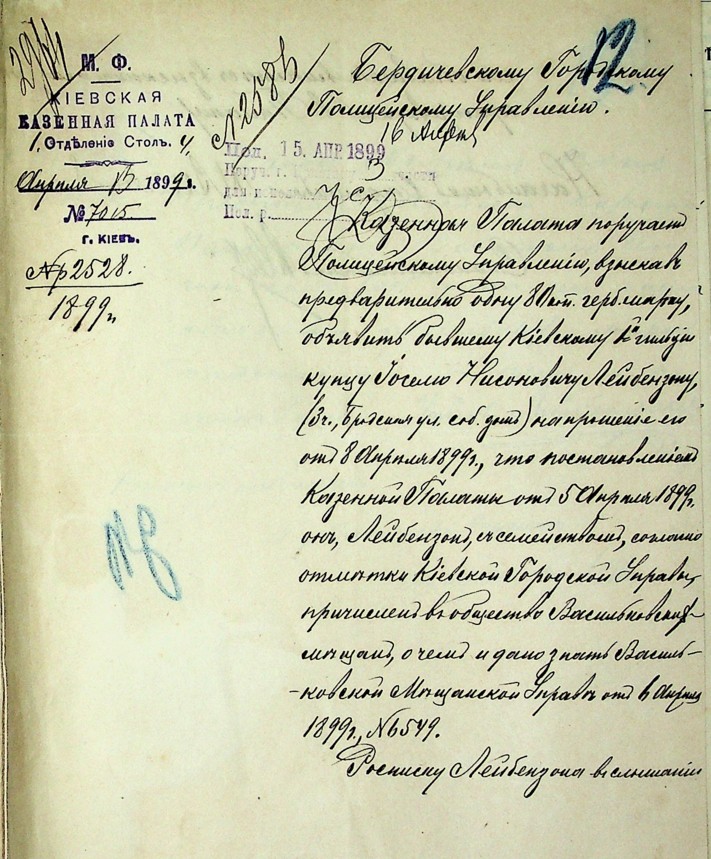 12
М. Ф.
КІЕВСКАЯ
КАЗЕННАЯ ПАЛАТА
1. Отдѣленіе Столъ. 4.
Апрѣля 13 1899 г.
№ 7015
Г. КІЕВЪ.
№ 2528.
1899 г.
№ 2585
Пол. 15. АПР. 1899
Поруч. г.
Пол. р.
Бердичевскому Городскому
Полицейскому Управленію.
16 Апрѣл
Казенная Палата поручаетъ
Полицейскому Управленію, взыскавъ
предварительно одну 80 коп. герб. марку,
объявить бывшему Кіевскому 1й гильдіи
купцу Іоселю Нисоновичу Лейбензону,
(3 ч., Бродская ул. соб. домъ) на прошеніе его
отъ 8 Апрѣля 1899 г., что постановленіемъ
Казенной Палаты отъ 5 Апрѣля 1899 г.
онъ, Лейбензонъ, съ семействомъ, согласно
отмѣтки Кіевской Городской Управы,
причисленъ въ общество Васильковскихъ
мѣщанъ, о чемъ и дано знать Василь-
-ковской Мѣщанской Управѣ отъ 6 Апрѣля
1899 г., № 6549.
Росписку Лейбензона въ слышаніи